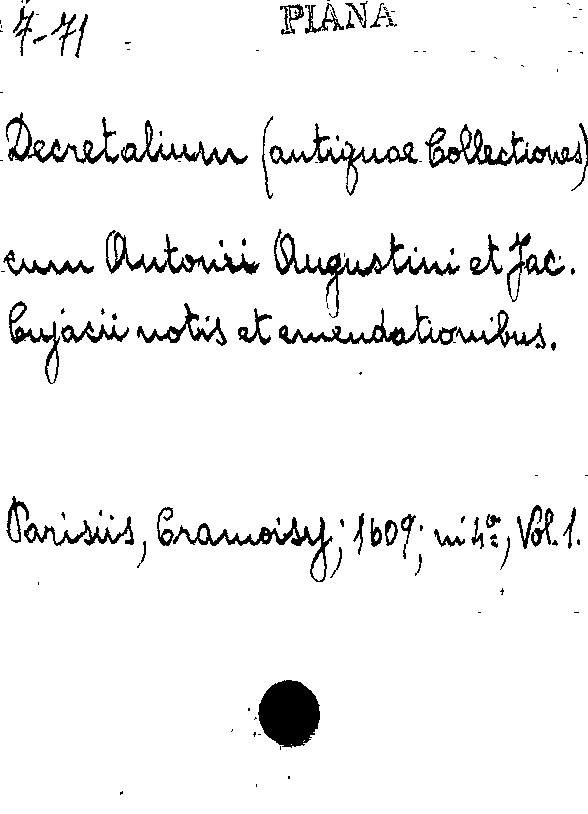 7-71
PIANA
Decretalium (antiquae Collectiones)
cum Antonii Augustini et Jac.
Cujacii notis et emendationibus.
Parisiis, Cramoisy; 1609; in 4º, Vol. 1.